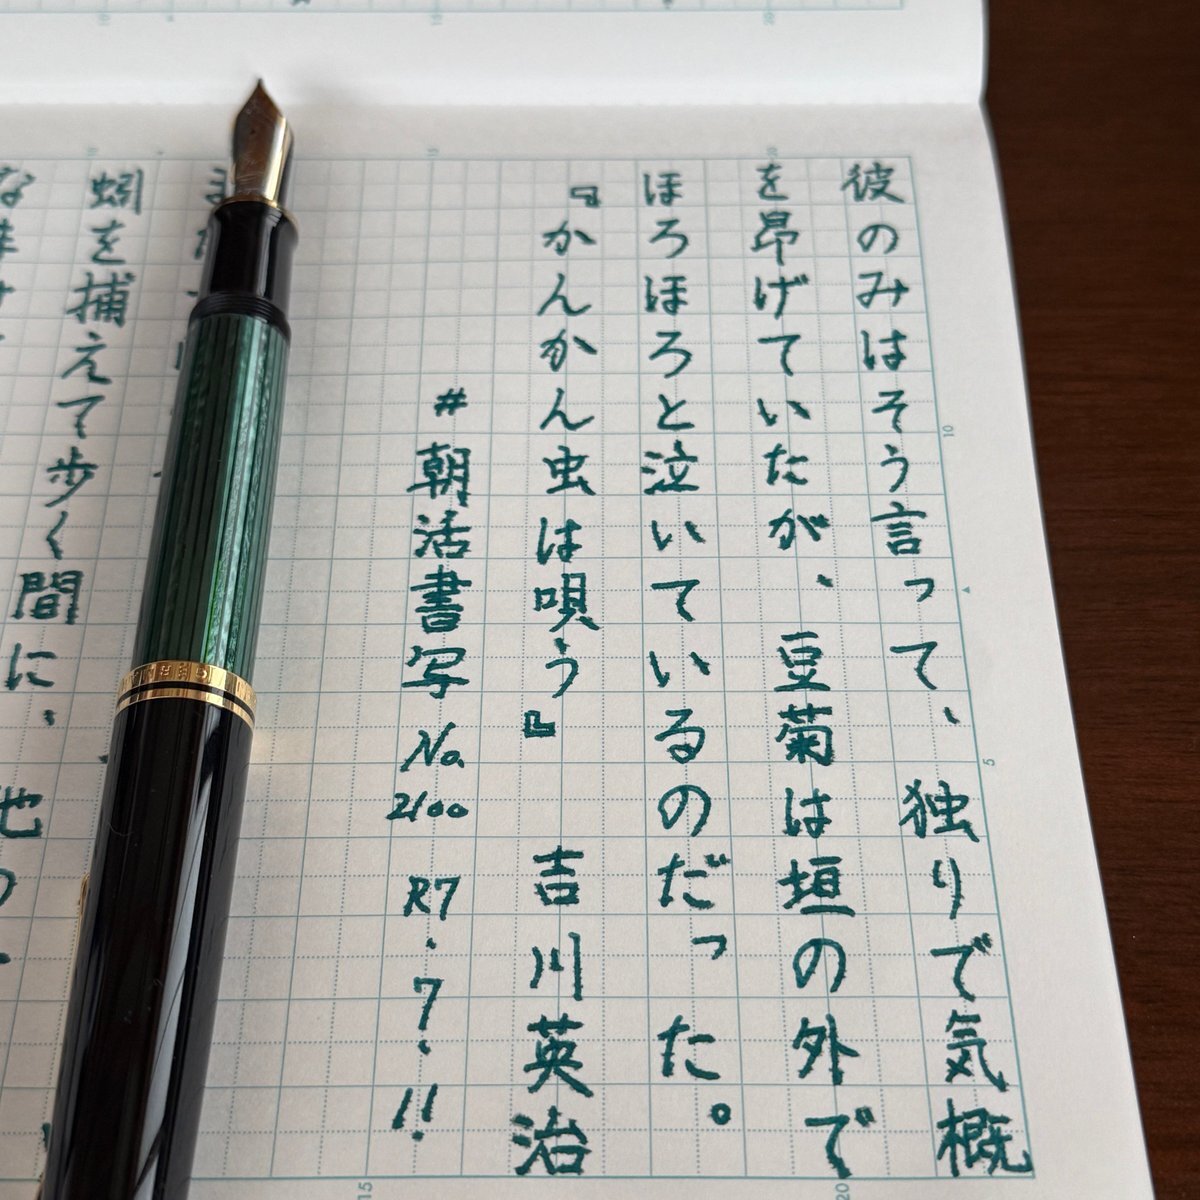 彼のみはそう言って、独りで気概
を昂げていたが、豆菊は垣の外で
ほろほろと泣いているのだった。
『かんかん虫は唄う』 吉川英治
#朝活書写 No.2100 R7.7.11.
蚓を捕えて歩く間に、